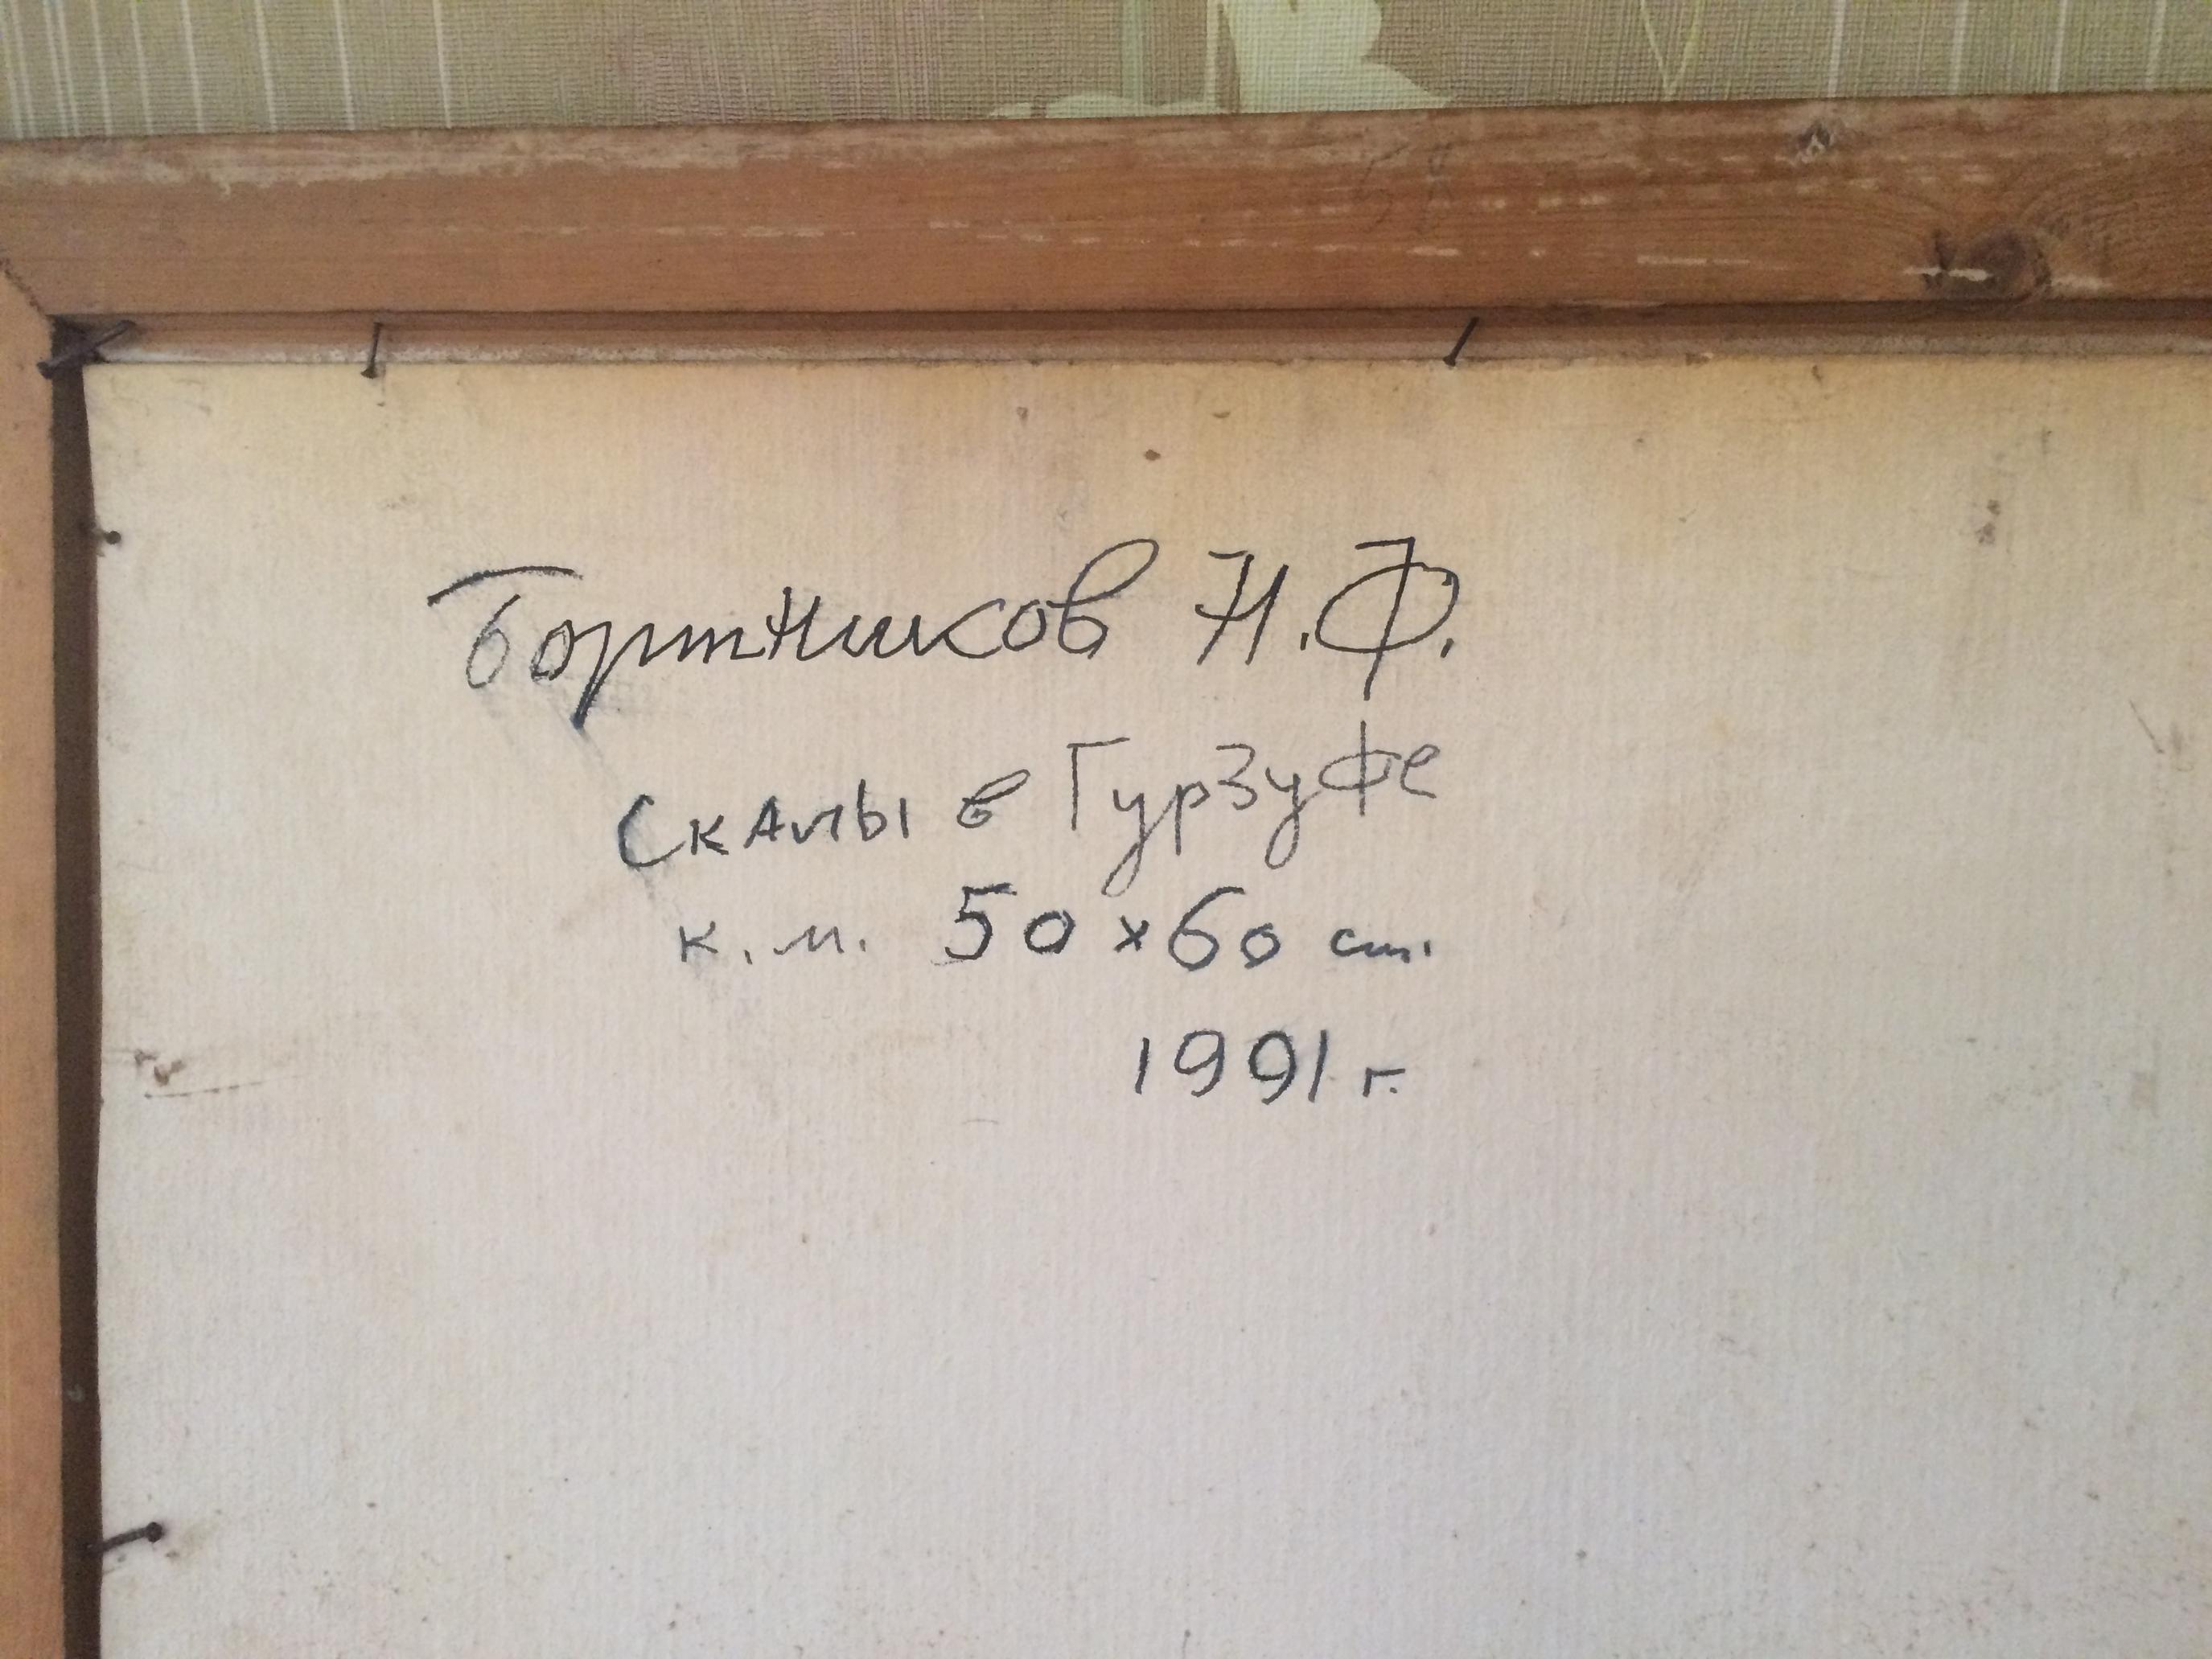 Бортников Н.Ф.
Скалы в Гурзуфе
к.м. 50 х 60 см.
1991 г.